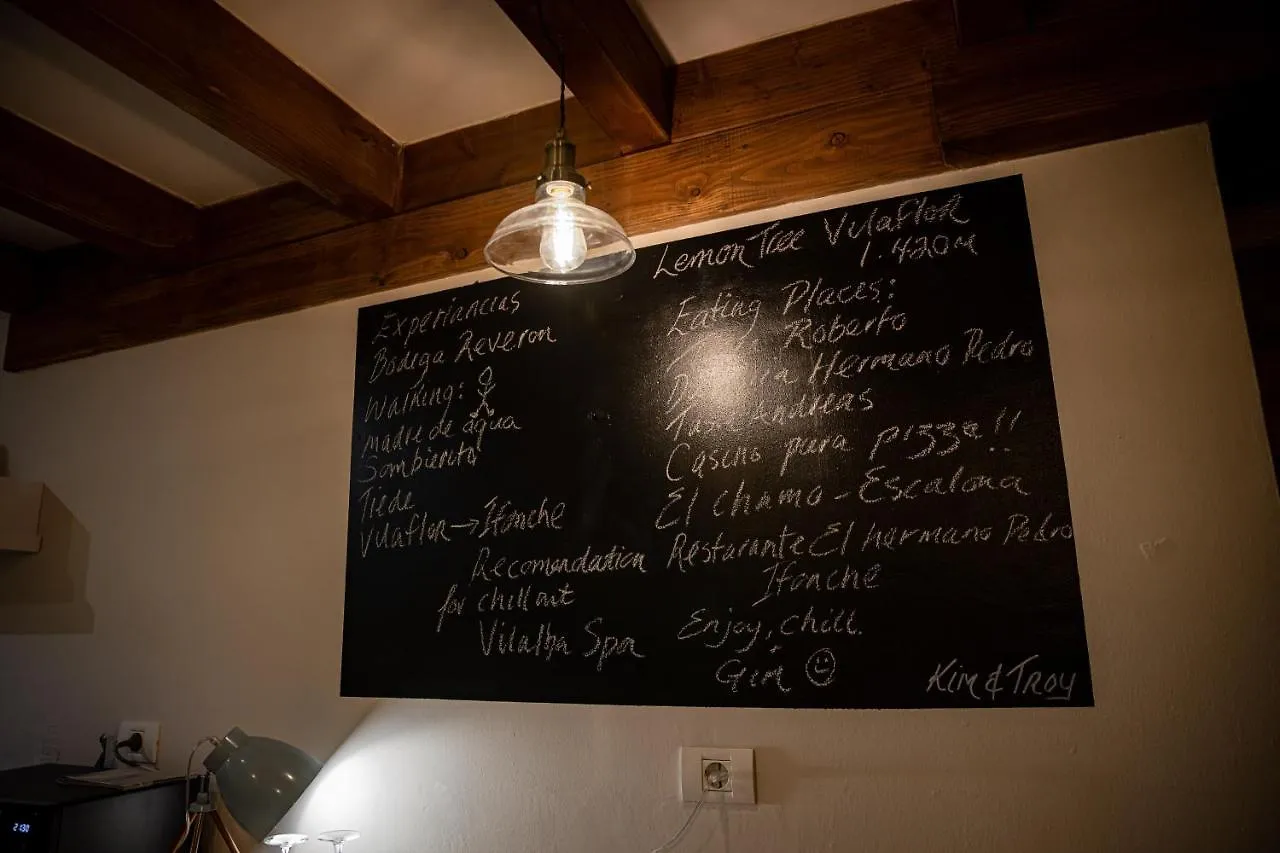 Lemon Tree Vilaflor
1.420m
Experiancias
Bodega Reveron
Walking:
Madre de agua
Sombierito
Tiede
Vilaflor → Ifonche
Recomendation
for chill out
Vilalba Spa
Eating Places:
Roberto
Hermano Pedro
Tasca Andreas
Casino para pizza!!
El chamo - Escalona
Restarante El Hermano Pedro
Ifonche
Enjoy, chill.
Gin
Kim & Troy
21:30